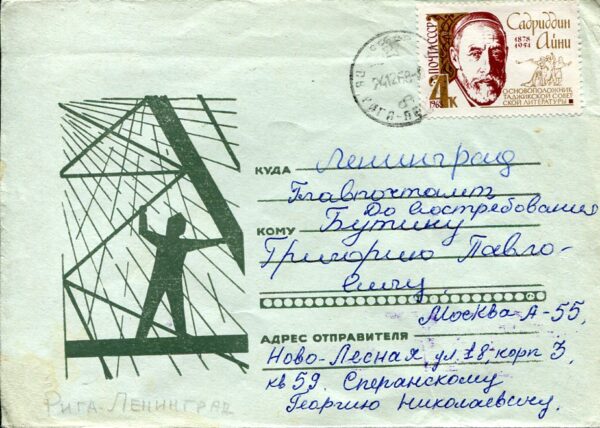 ПОЧТА СССР
Садриддин
Айни
1878
1954
ОСНОВОПОЛОЖНИК
ТАДЖИКСКОЙ СОВЕТ
СКОЙ ЛИТЕРАТУРЫ
4к
1968
КУДА Ленинград
Главпочтамт
До востребования
КОМУ Бутину
Григорию Павло-
вичу
Москва А-55,
АДРЕС ОТПРАВИТЕЛЯ
Ново-Лесная ул 18, корп 3,
кв 59. Сперанскому
Георгию Николаевичу.
РИГА-ЛЕНИНГРАД